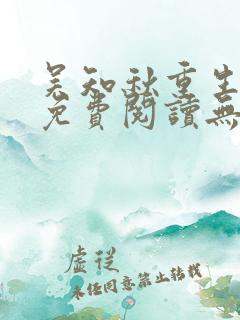 吴知秋重生
免費閱讀無
虛從
未经同意禁止转载